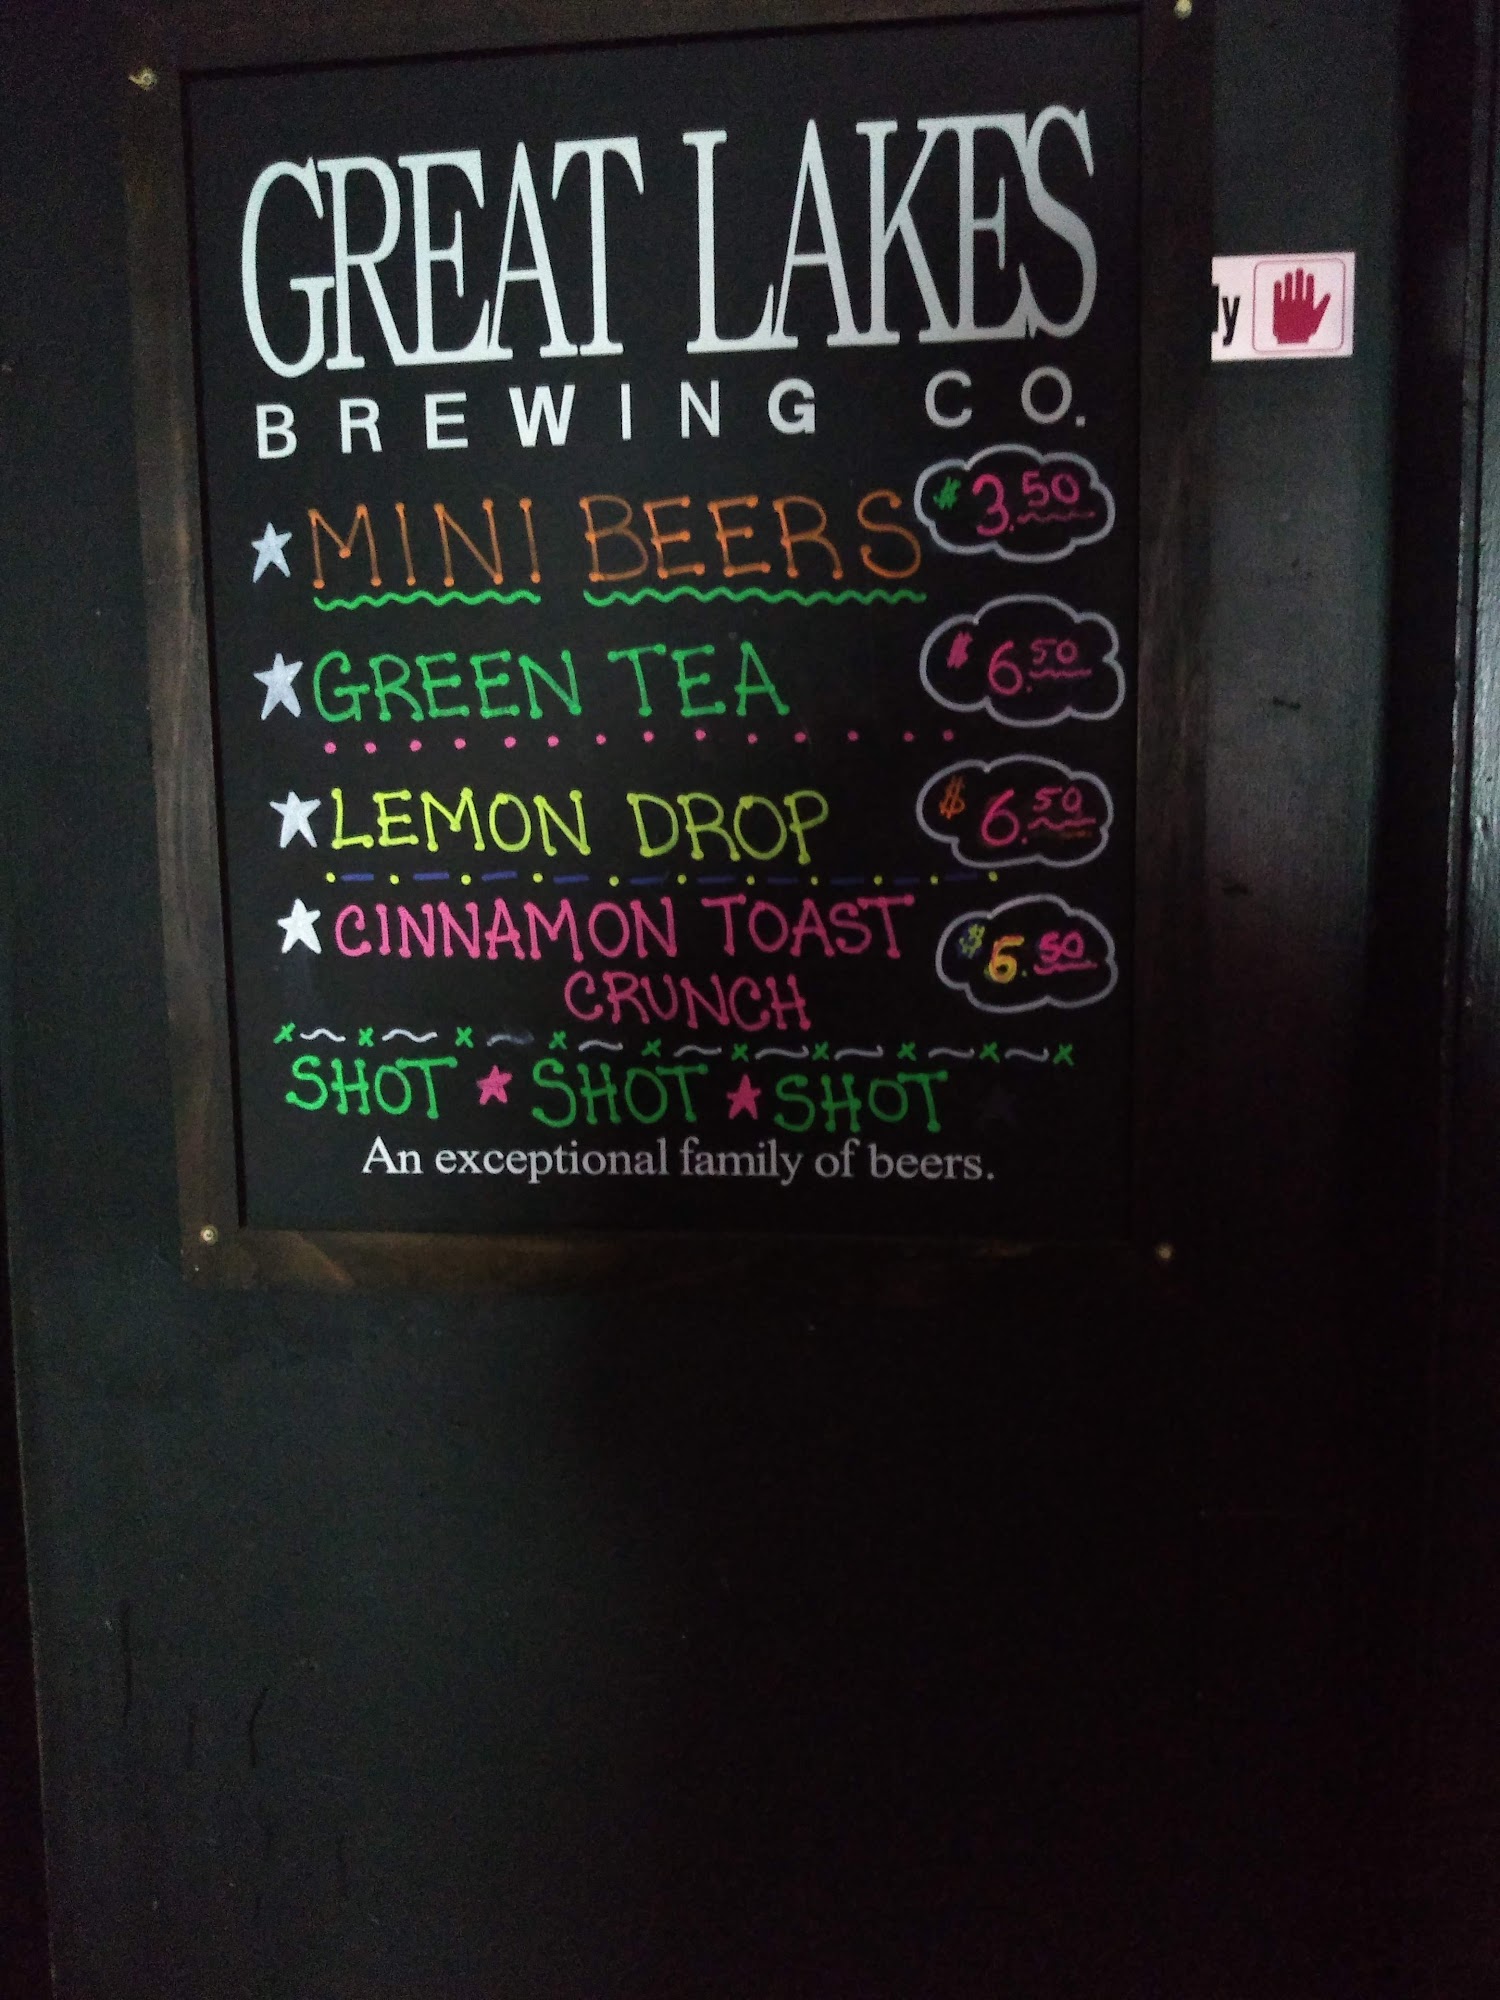 GREAT LAKES
BREWING CO.
MINI BEERS $3.50
GREEN TEA $6.50
LEMON DROP $6.50
CINNAMON TOAST
CRUNCH
SHOT SHOT SHOT
An exceptional family of beers.